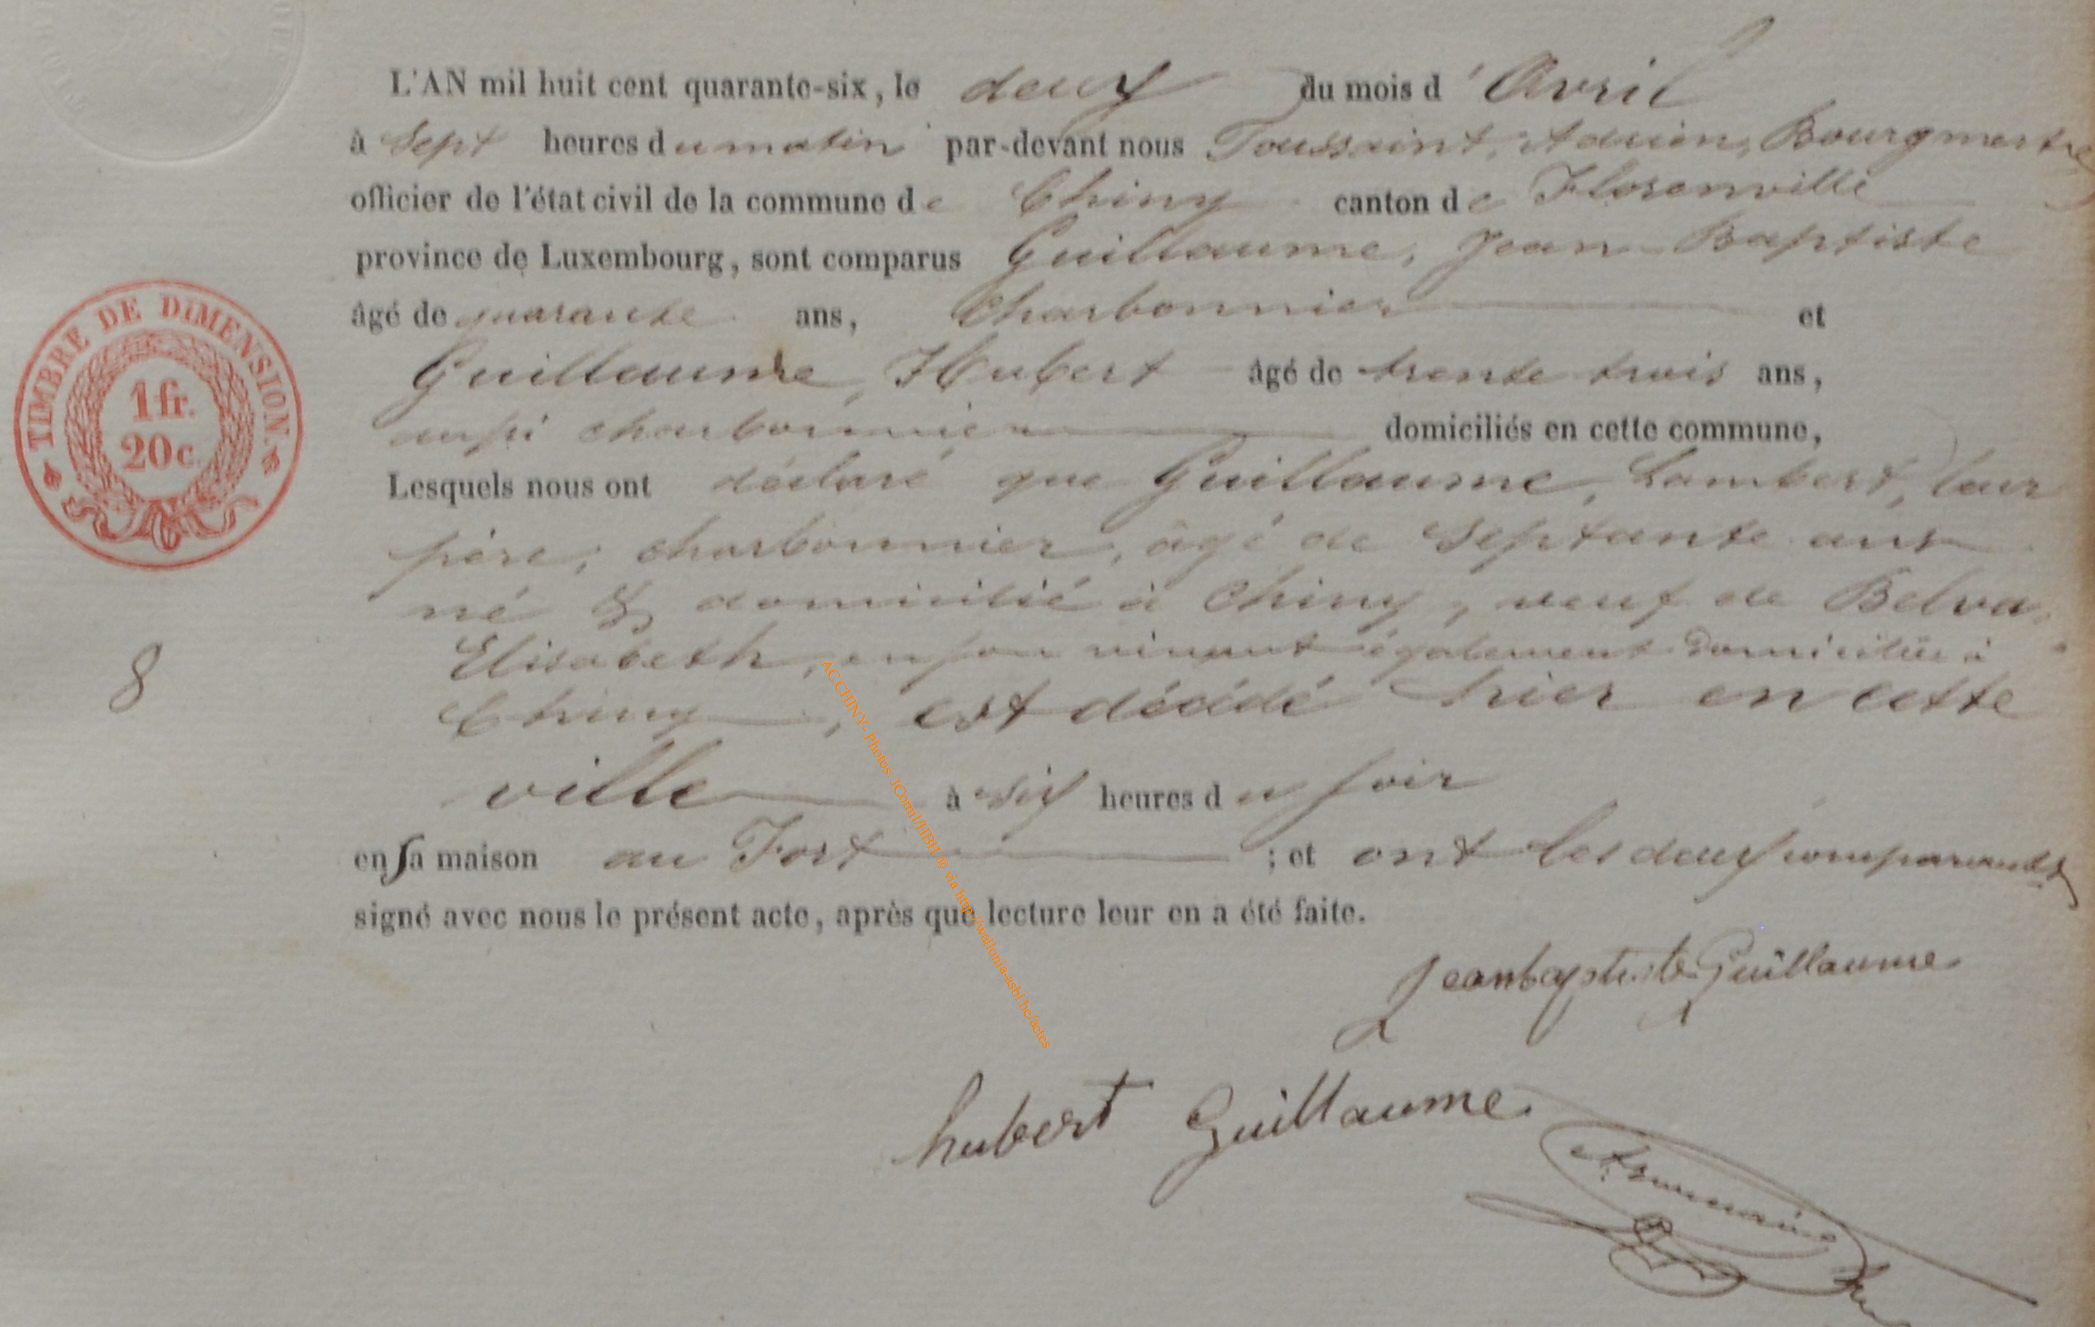 L'AN mil huit cent quarante-six, le deux du mois d'Avril
à Sept heures du matin par-devant nous Toussaint, Adrien, Bourgmestre
officier de l'état civil de la commune de Chiny canton de Florenville
province de Luxembourg, sont comparus Guillaume, Jean-Baptiste
âgé de quarante ans, Charbonnier et
Guillaume, Hubert âgé de trente trois ans,
aussi charbonnier domiciliés en cette commune,
Lesquels nous ont déclaré que Guillaume, Lambert, leur
père, charbonnier, âgé de Septante ans
né & domicilié à Chiny, veuf de Belva,
Elisabeth, en son vivant également domiciliée à
Chiny, est décédé hier en cette
ville à six heures du soir
en sa maison au Fort ; et ont les deux comparants
signé avec nous le présent acte, après que lecture leur en a été faite.
Jeanbaptiste Guillaume
hubert Guillaume
TIMBRE DE DIMENSION.
1 fr.
20 c.
8
AC CHINY - Photos JCorail/HBH @ via http://wallonia-asbl.be/actes